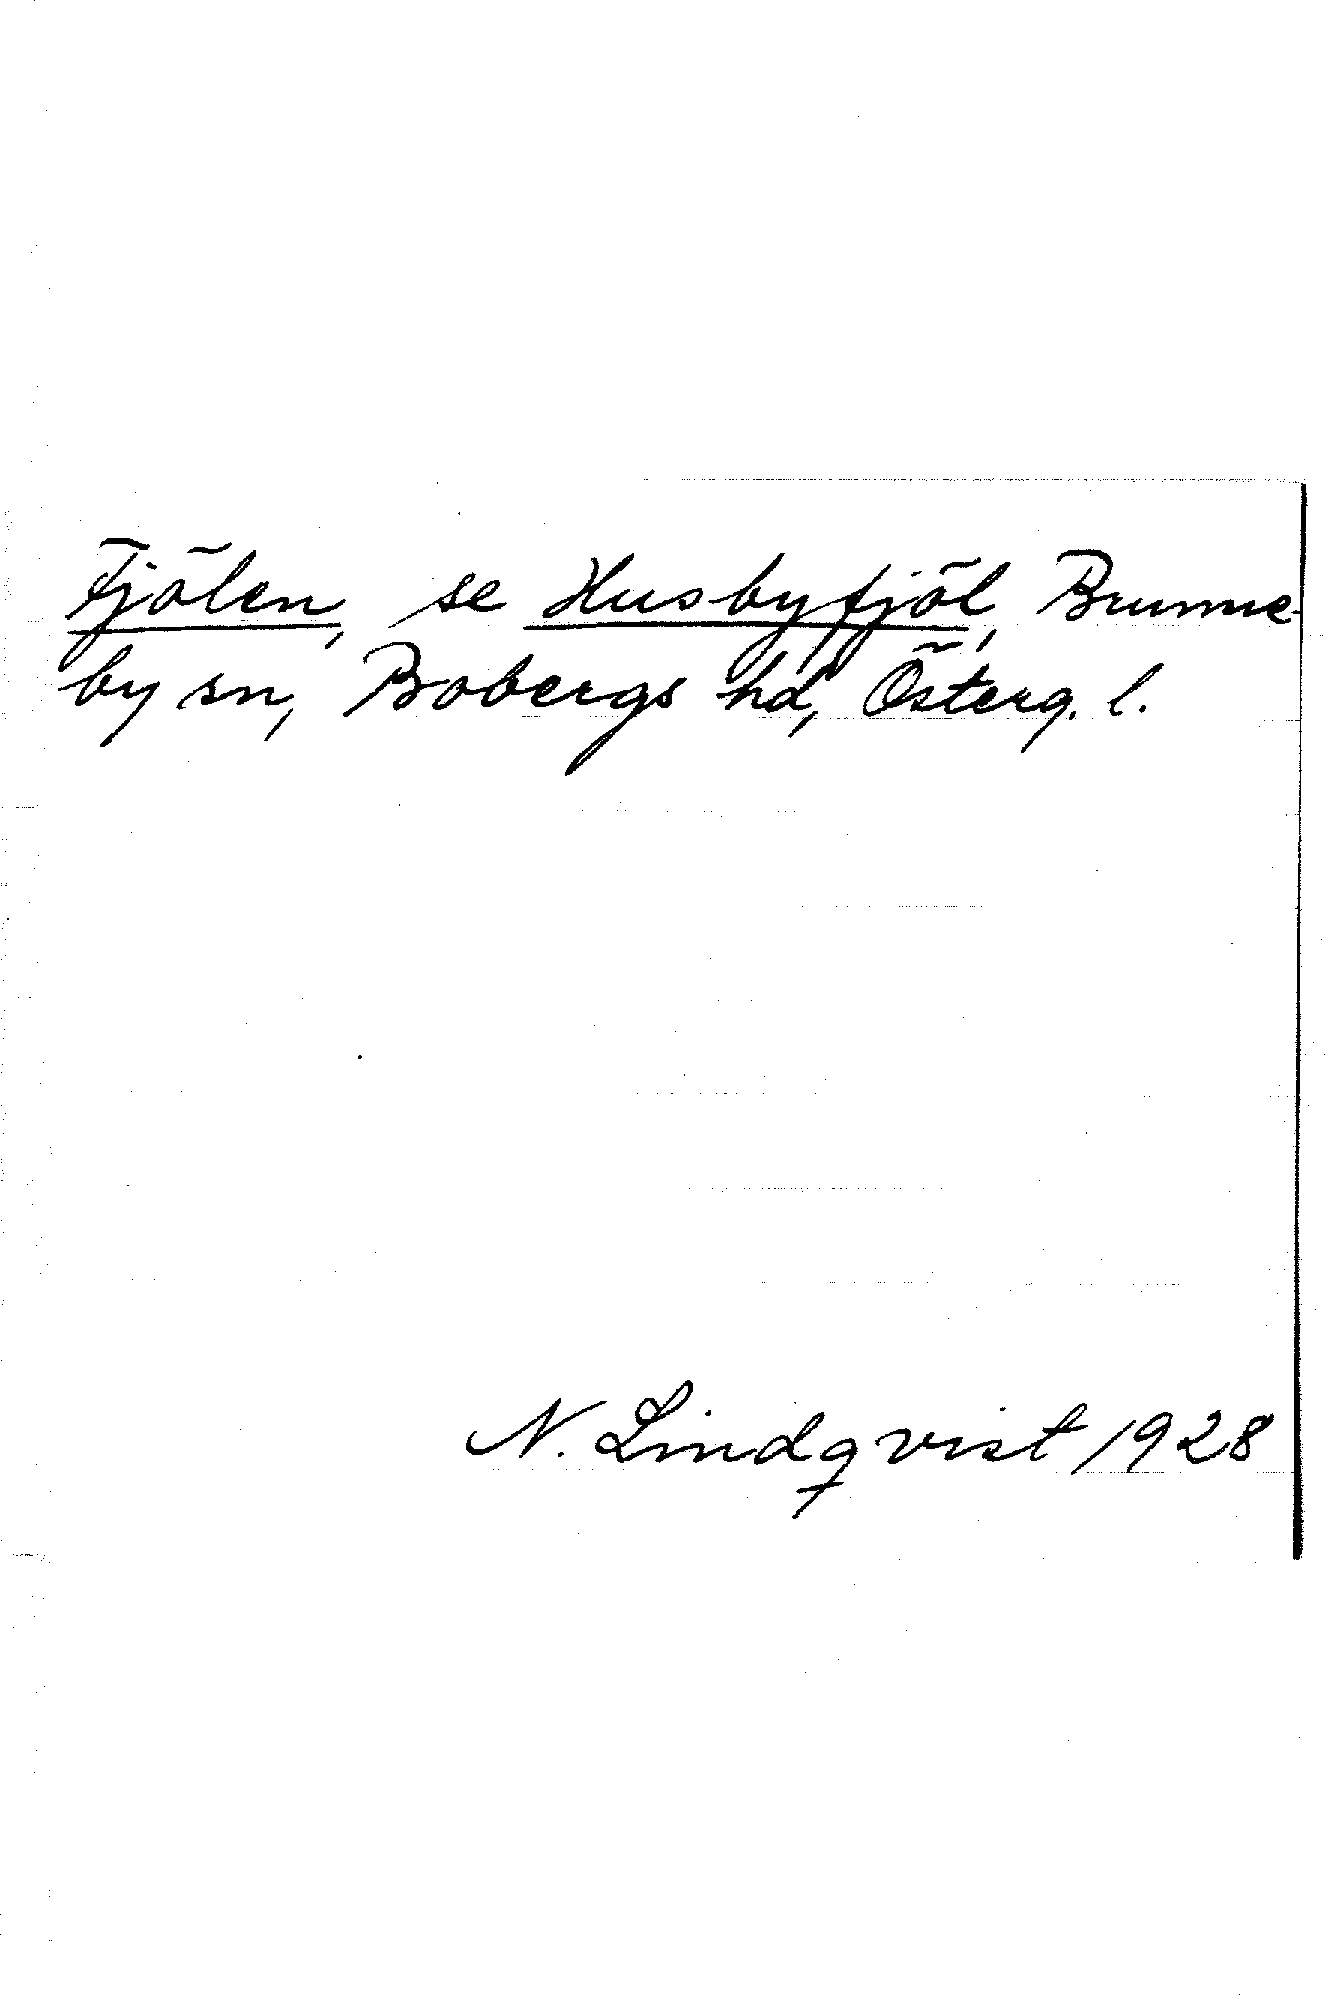 Fjölen, se Husbyfjöl, Brunne-
by sn, Bobergs hd, Österg. l.
N. Lindqvist 1928